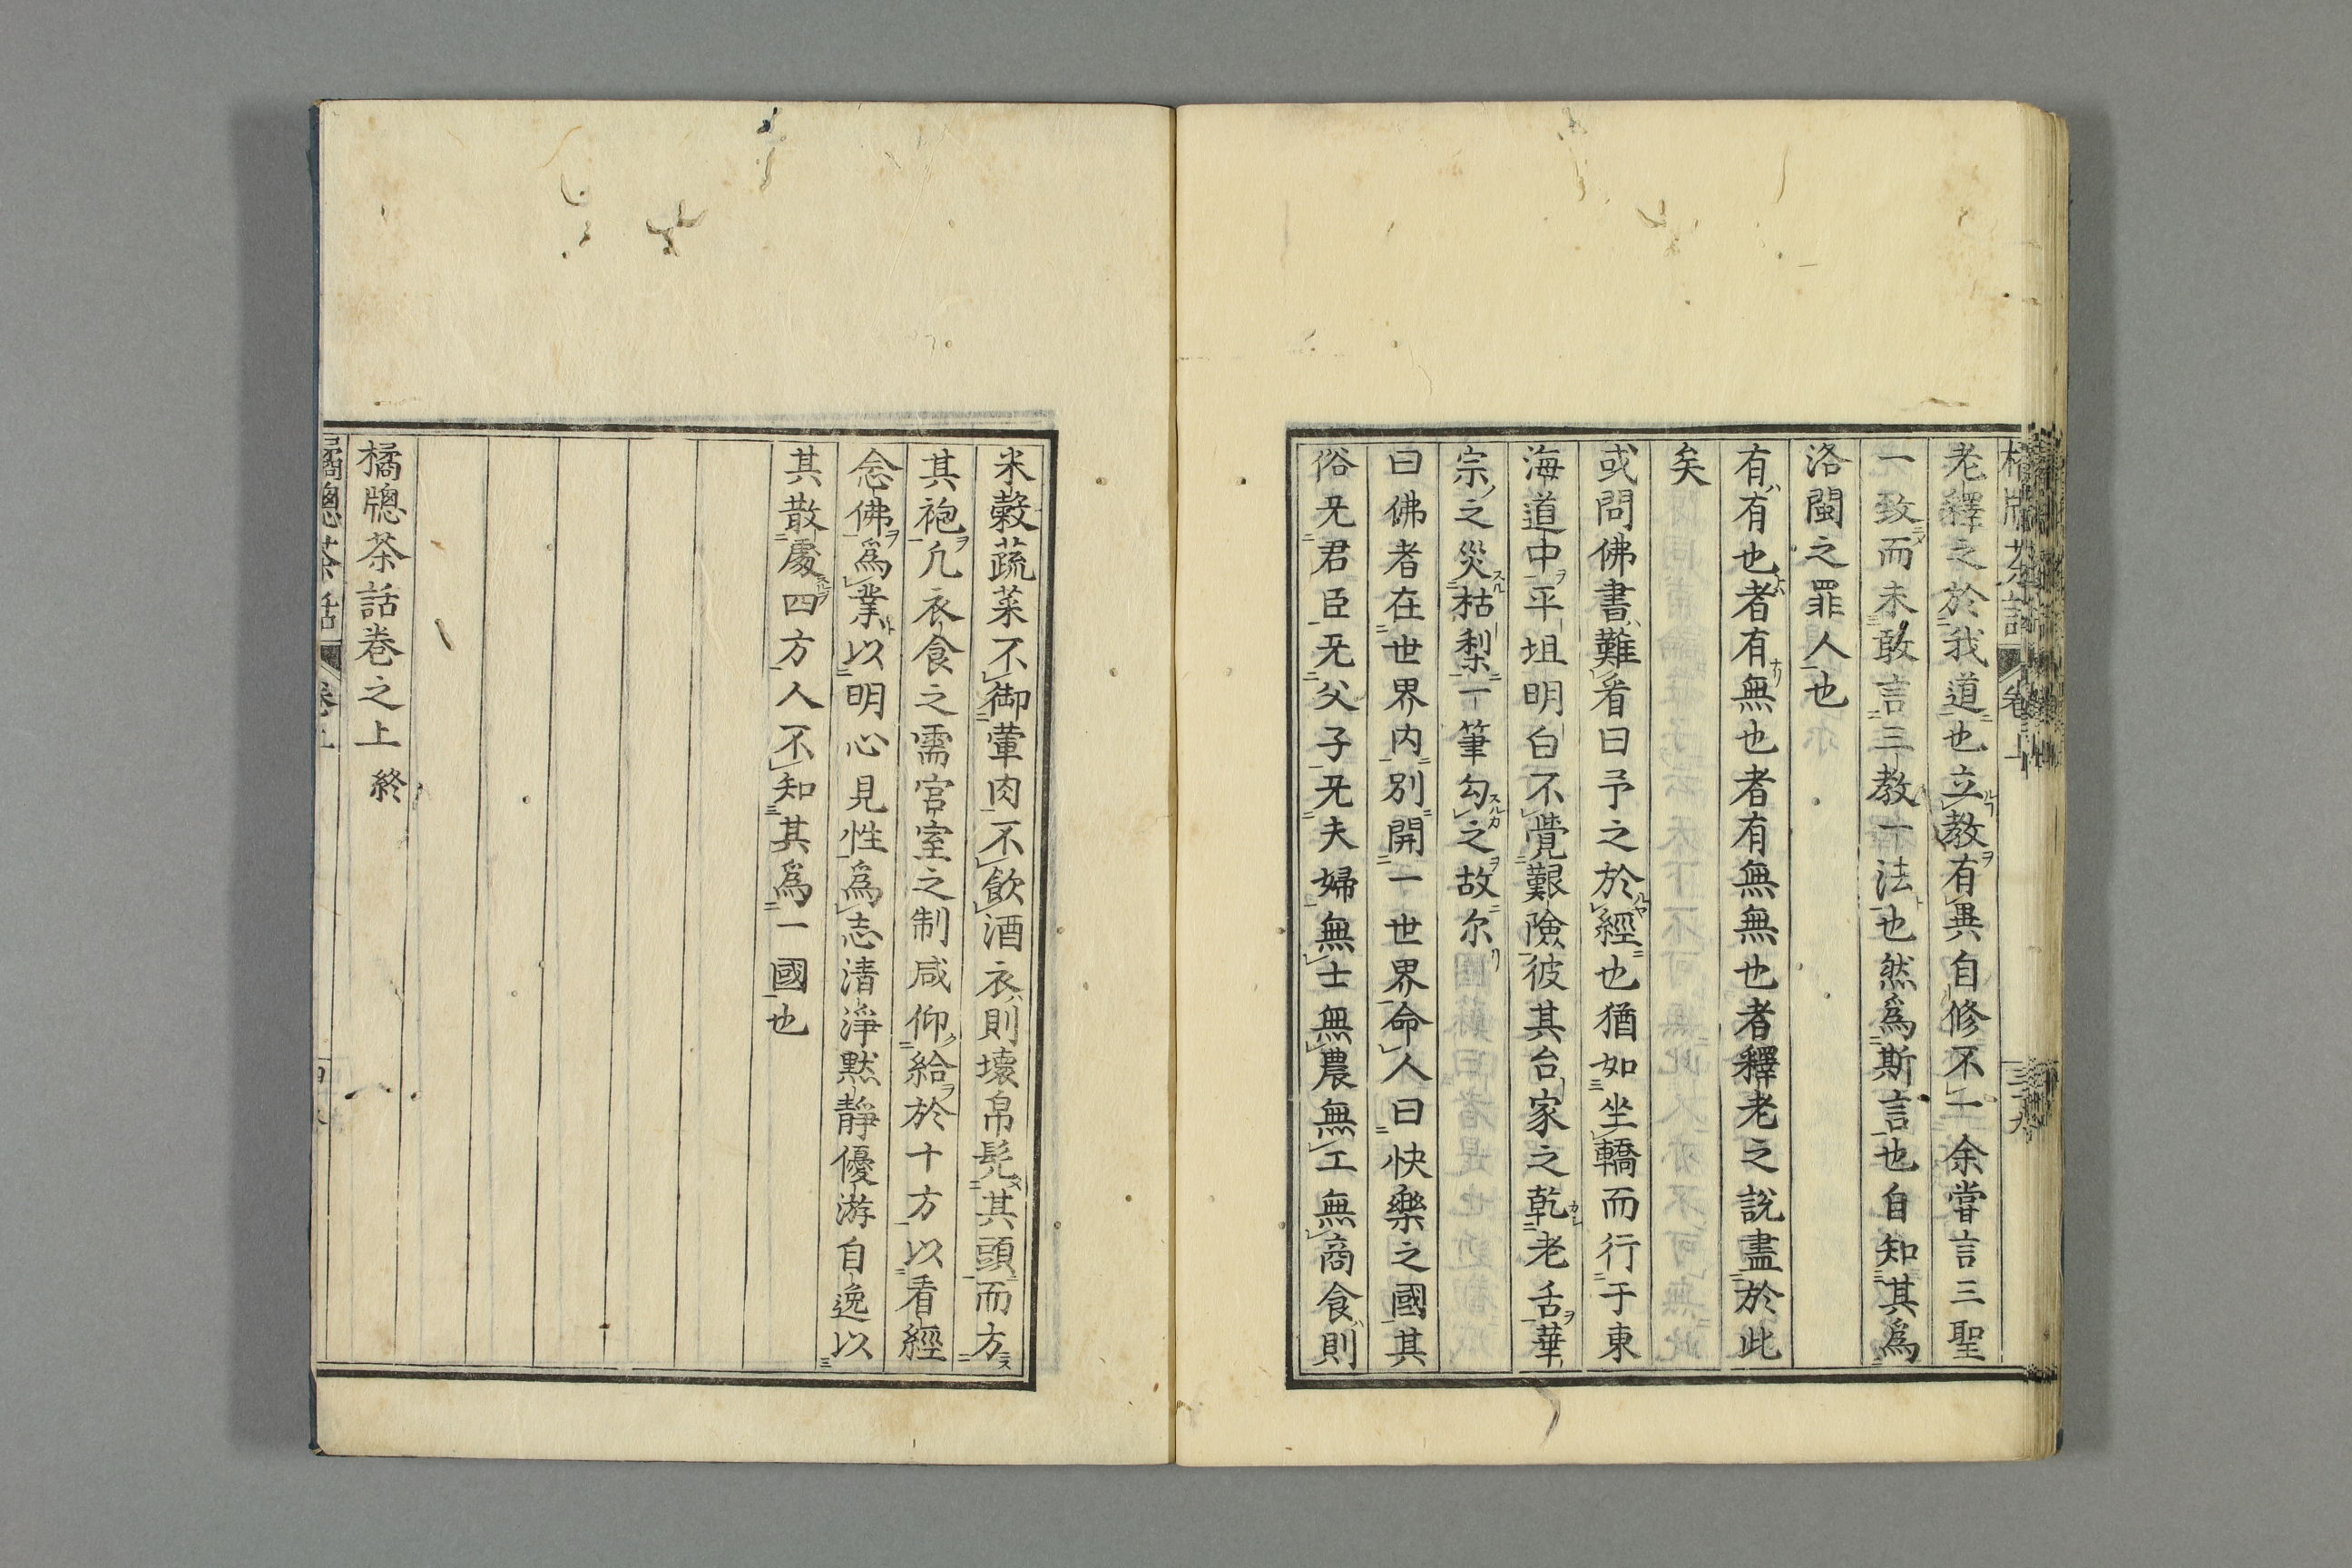 老釋之於我道也立教有異自修不一余甞言三聖
一致而未敢言三教一法也然爲斯言也自知其爲
洛閩之罪人也
有有也者有無也者有無無也者釋老之說盡於此
矣
或問佛書難看曰予之於經也猶如坐轎而行于東
海道中平坦明白不覺艱險彼其台家之乾老舌華
宗之災枯梨一筆勾之故尔
曰佛者在世界内別開一世界命人曰快樂之國其
俗旡君臣旡父子旡夫婦無士無農無工無商食則
米穀蔬菜不御葷肉不飲酒衣則壊帛髡其頭而方
其袍凢衣食之需宮室之制咸仰給於十方以看經
念佛爲業以明心見性爲志清淨默靜優游自逸以
其散處四方人不知其爲一國也
橘牎茶話巻之上 終